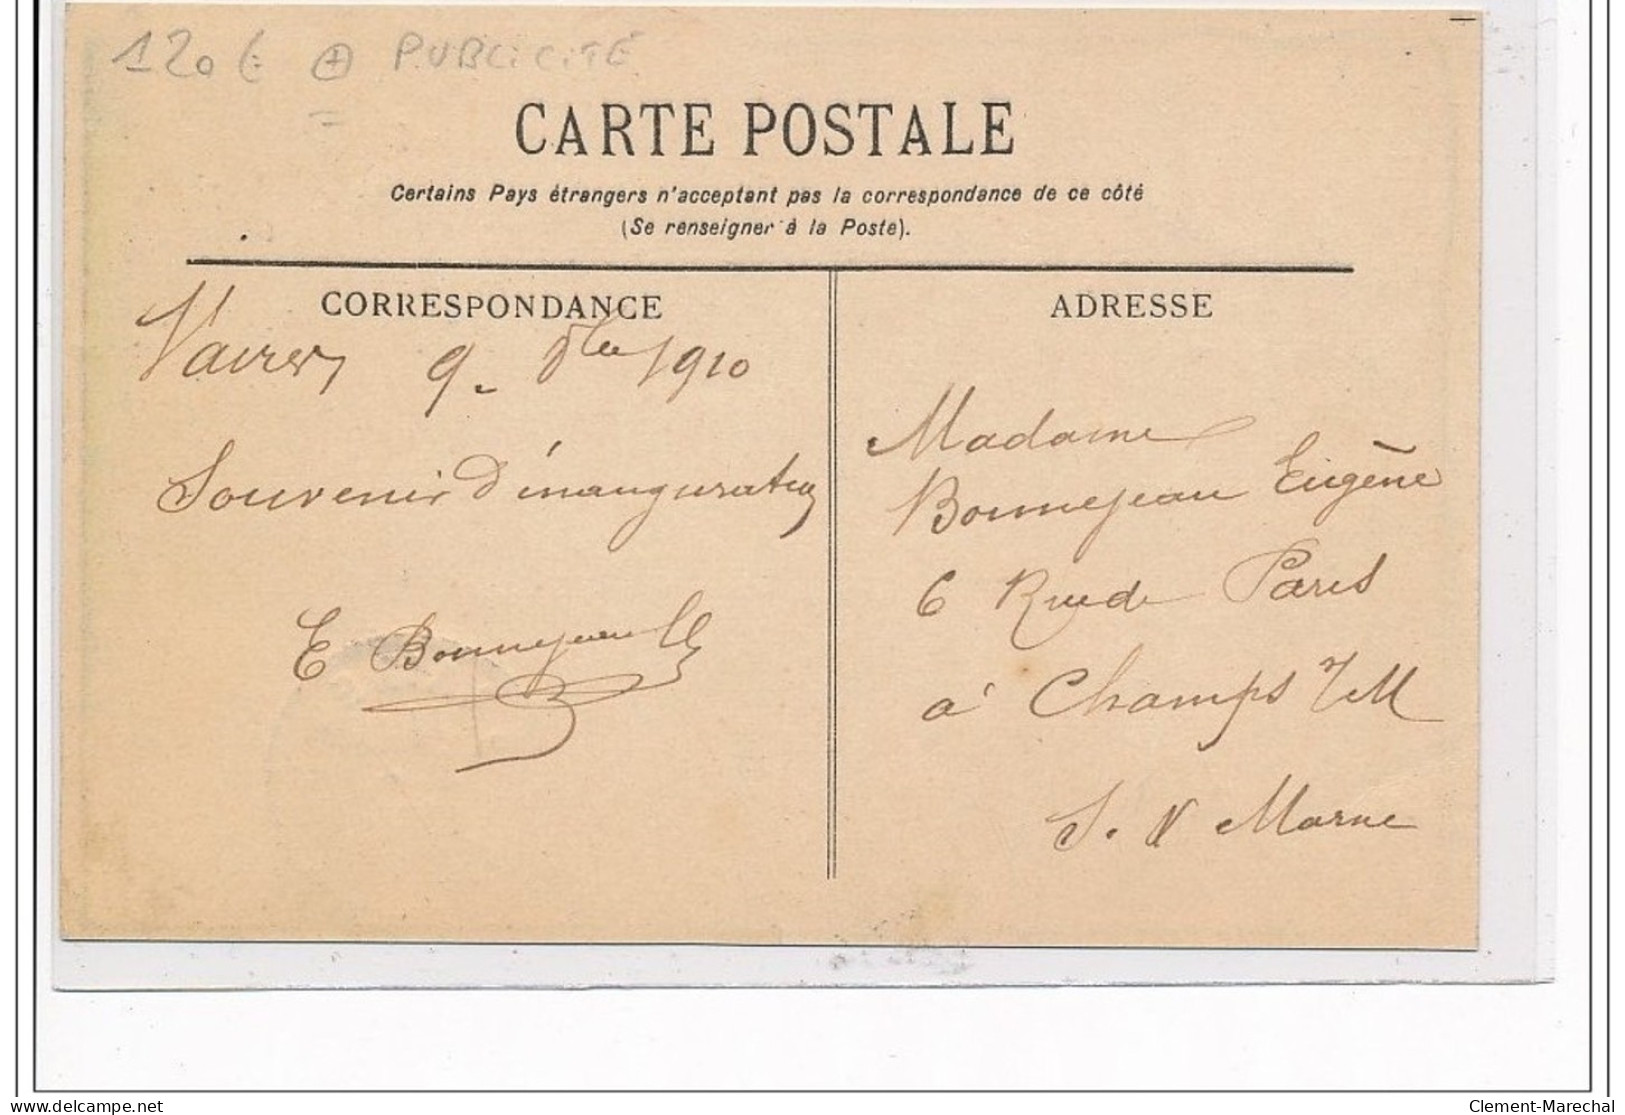 120 € + PUBLICITÉ
CARTE POSTALE
Certains Pays étrangers n'acceptent pas la correspondance de ce côté
(Se renseigner à la Poste).
CORRESPONDANCE
Vaires 9 1910
Souvenir d'inauguration
E Bonnejean
ADRESSE
Madame
Bonnejean Eugène
6 Rue de Paris
à Champs s/M
S. & Marne
Clement-Marechal